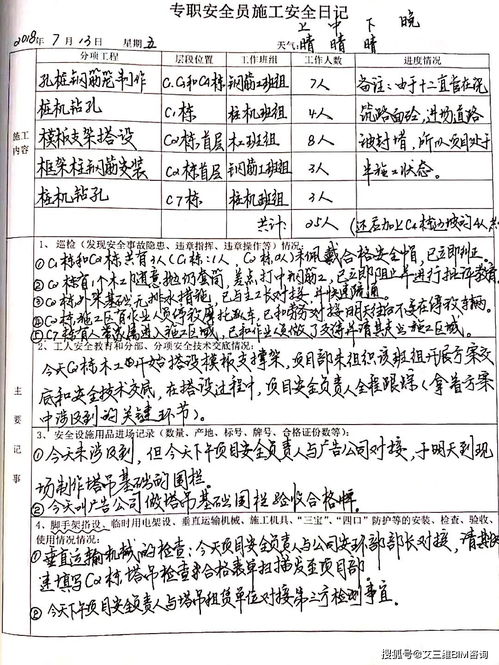 专职安全员施工安全日记
2018年7月13日 星期五 天气: 上晴 中晴 下晴 晚
分项工程 层段位置 工作班组 工作人数 进度情况
孔桩钢筋笼制作 钢筋工班组 7人 备注:由于十二直管在浇
桩机钻孔 C1栋 桩机班组 4人 筑路面砼,进场道路
施工内容
模板支架搭设 C2栋首层 木工班组 8人 被封堵,所以项目处于
框架柱钢筋安装 C2栋首层 钢筋工班组 3人 半施工状态。
桩机钻孔 C7栋 桩机班组 3人
共计 25人
主要记事
1、巡检(发现安全事故隐患、违章指挥、违章操作等)情况:
①C1栋和C2栋共有3人 未佩戴合格安全帽,已立即纠正。
②C2栋有1个木工随意抛扔套筒,差点打中钢筋工,已立即阻止并进行批评教育
③ 基础无排水措施,已与主工长对接,并快速疏通。
④ 施工区有作业人员停放摩托车,已和劳务对接明天往后不要在停放车辆。
⑤C7栋有人带家属进入施工区域,已和作业人员做了交待并请其离出施工区域。
2、工人安全教育和分部、分项安全技术交底情况:
今天C2栋木工面开始搭设模板支撑架,项目部未组织该班组开展方案交
底和安全技术交底,在搭设过程中,项目安全负责人全程跟踪(拿着方案
中涉及到的关键环节)。
3、安全设施用品进场记录(数量、产地、标号、牌号、合格证份数等):
①今天未涉及到,但今天下午项目安全负责人与广告公司对接,于明天到现
场制作塔吊基础的围栏。
②今天叫广告公司做塔吊基础围栏验收合格牌。
4、脚手架搭设、临时用电架设、垂直运输机械、施工机具、“三宝”、“四口”防护等的安装、检查、验收、
使用情况情况:
①垂直运输机械的检查:今天项目安全负责人与公司安环部部长对接,请其快
速填写C2栋塔吊检查合格表单扫描发至项目部
②今天下午项目安全负责人与塔吊租赁单位对接第三方检测事宜。
搜狐号@艾三维BIM咨询